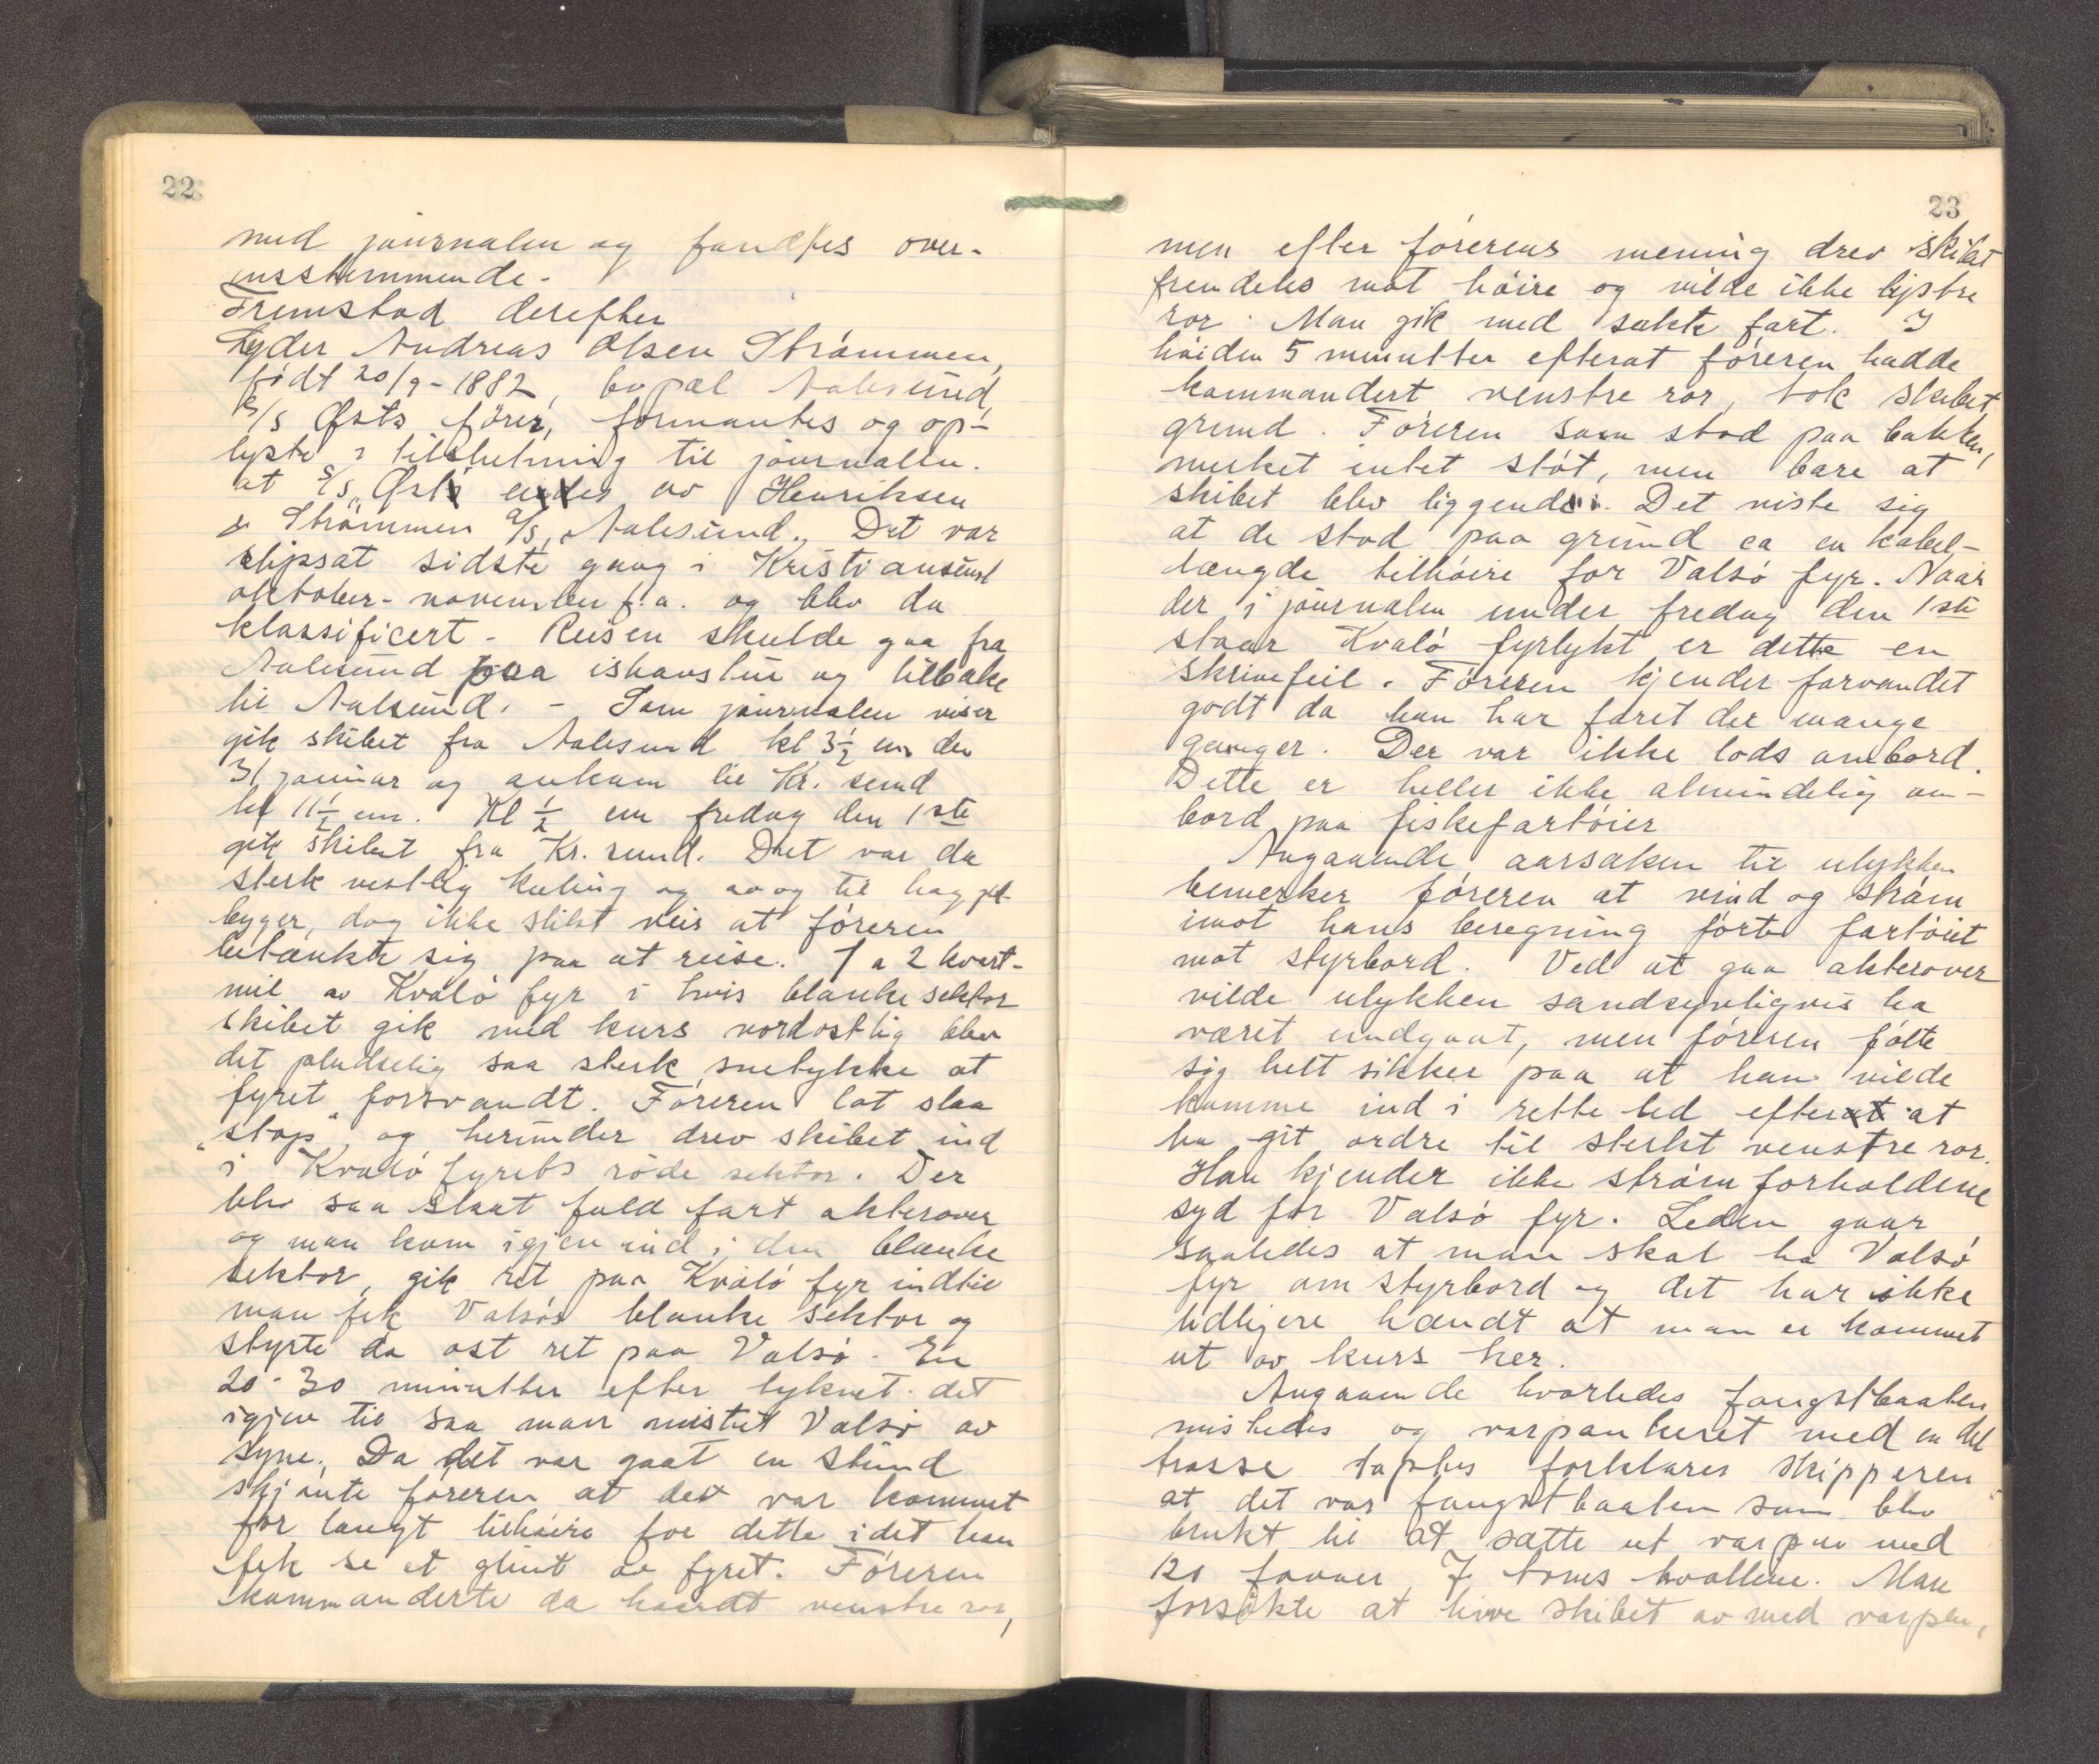 22
med journalen og fandtes over-
ensstemmende.
Fremstod derefter
Lyder Andreas Olsen Strømmen,
født 20/9-1882, bopæl Aalesund,
s/s Ørsts fører, formantes og op-
lyste i tilslutning til journalen.
at s/s "Ørst" eies av Henriksen
& Strømmen A/S, Aalesund. Det var
slipsat sidste gang i Kristiansund
oktober-november f.a. og blev da
klassificert - Reisen skulde gaa fra
Aalesund paa ishavstur og tilbake
til Aalesund. - Som journalen viser
gik skibet fra Aalesund kl 3½ em den
31 januar og ankom til Kr. sund
kl 11½ em. Kl ½ em fredag den 1ste
gik skibet fra Kr. sund. Det var da
sterk vestlig kuling og av og til hagel-
byger, dog ikke slikt veir at føreren
betænkte sig paa at reise. 1 a 2 kvart-
mil av Kvalø fyr i hvis blanke sektor
skibet gik med kurs nordostlig blev
det pludselig saa sterk snetykke at
fyret forsvandt. Føreren lot slaa
"stop", og herunder drev skibet ind
i Kvalø fyrets røde sektor. Der
blev saa slaat fuld fart akterover
og man kom igjen ind i den blanke
sektor, gik ret paa Kvalø fyr indtil
man fik Valsøs blanke sektor og
styrte da ost ret paa Valsø. En
20-30 minutter efter tyknet det
igjen til saa man mistet Valsø av
syne. Da det var gaat en stund
skjønte føreren at det var kommet
for langt tilhøire for dette idet han
fik se et glimt av fyret. Føreren
kommanderte da haardt venstre ror,
23
men efter førerens mening drev skibet
fremdeles mot høire og vilde ikke lystre
ror. Man gik med sakte fart. I
høiden 5 minutter efterat føreren hadde
kommandert venstre ror, tok skibet
grund. Føreren som stod paa bakken,
merket intet støt, men bare at
skibet blev liggende. Det viste sig
at de stod paa grund ca en kabel-
længde tilhøire for Valsø fyr. Naar
der i journalen under fredag den 1ste
staar Kvalø fyrlykt er dette en
skrivefeil. Føreren kjender farvandet
godt da han har faret der mange
ganger. Der var ikke lods ombord.
Dette er heller ikke almindelig om-
bord paa fiskefartøier
Angaaende aarsaken til ulykken
bemerker føreren at vind og strøm
imot hans beregning førte fartøiet
mot styrbord. Ved at gaa akterover
vilde ulykken sandsynligvis ha
været undgaat, men føreren følte
sig helt sikker paa at han vilde
komme ind i rette led efter at
ha git ordre til sterkt venstre ror.
Han kjender ikke strømforholdene
syd for Valsø fyr. Leden gaar
saaledes at man skal ha Valsø
fyr om styrbord og det har ikke
tidligere hændt at man er kommet
ut av kurs her.
Angaaende hvorledes fangstbaaten
mistedes og varpankeret med en del
trosse taptes forklarer skipperen
at det var fangstbaaten som blev
brukt til at sætte ut varpen med
120 favner 7 toms trosse. Man
forsøkte at hive skibet av med varpen,